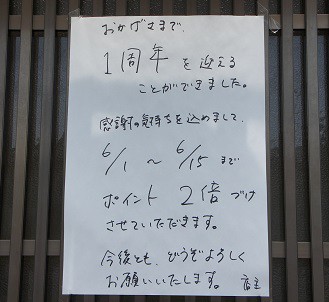 おかげさまで、
1周年を迎える
ことができました。
感謝の気持ちを込めまして、
6/1 ~ 6/15 まで
ポイント 2倍づけ
させていただきます。
今後とも、どうぞよろしく
お願いいたします。 店主